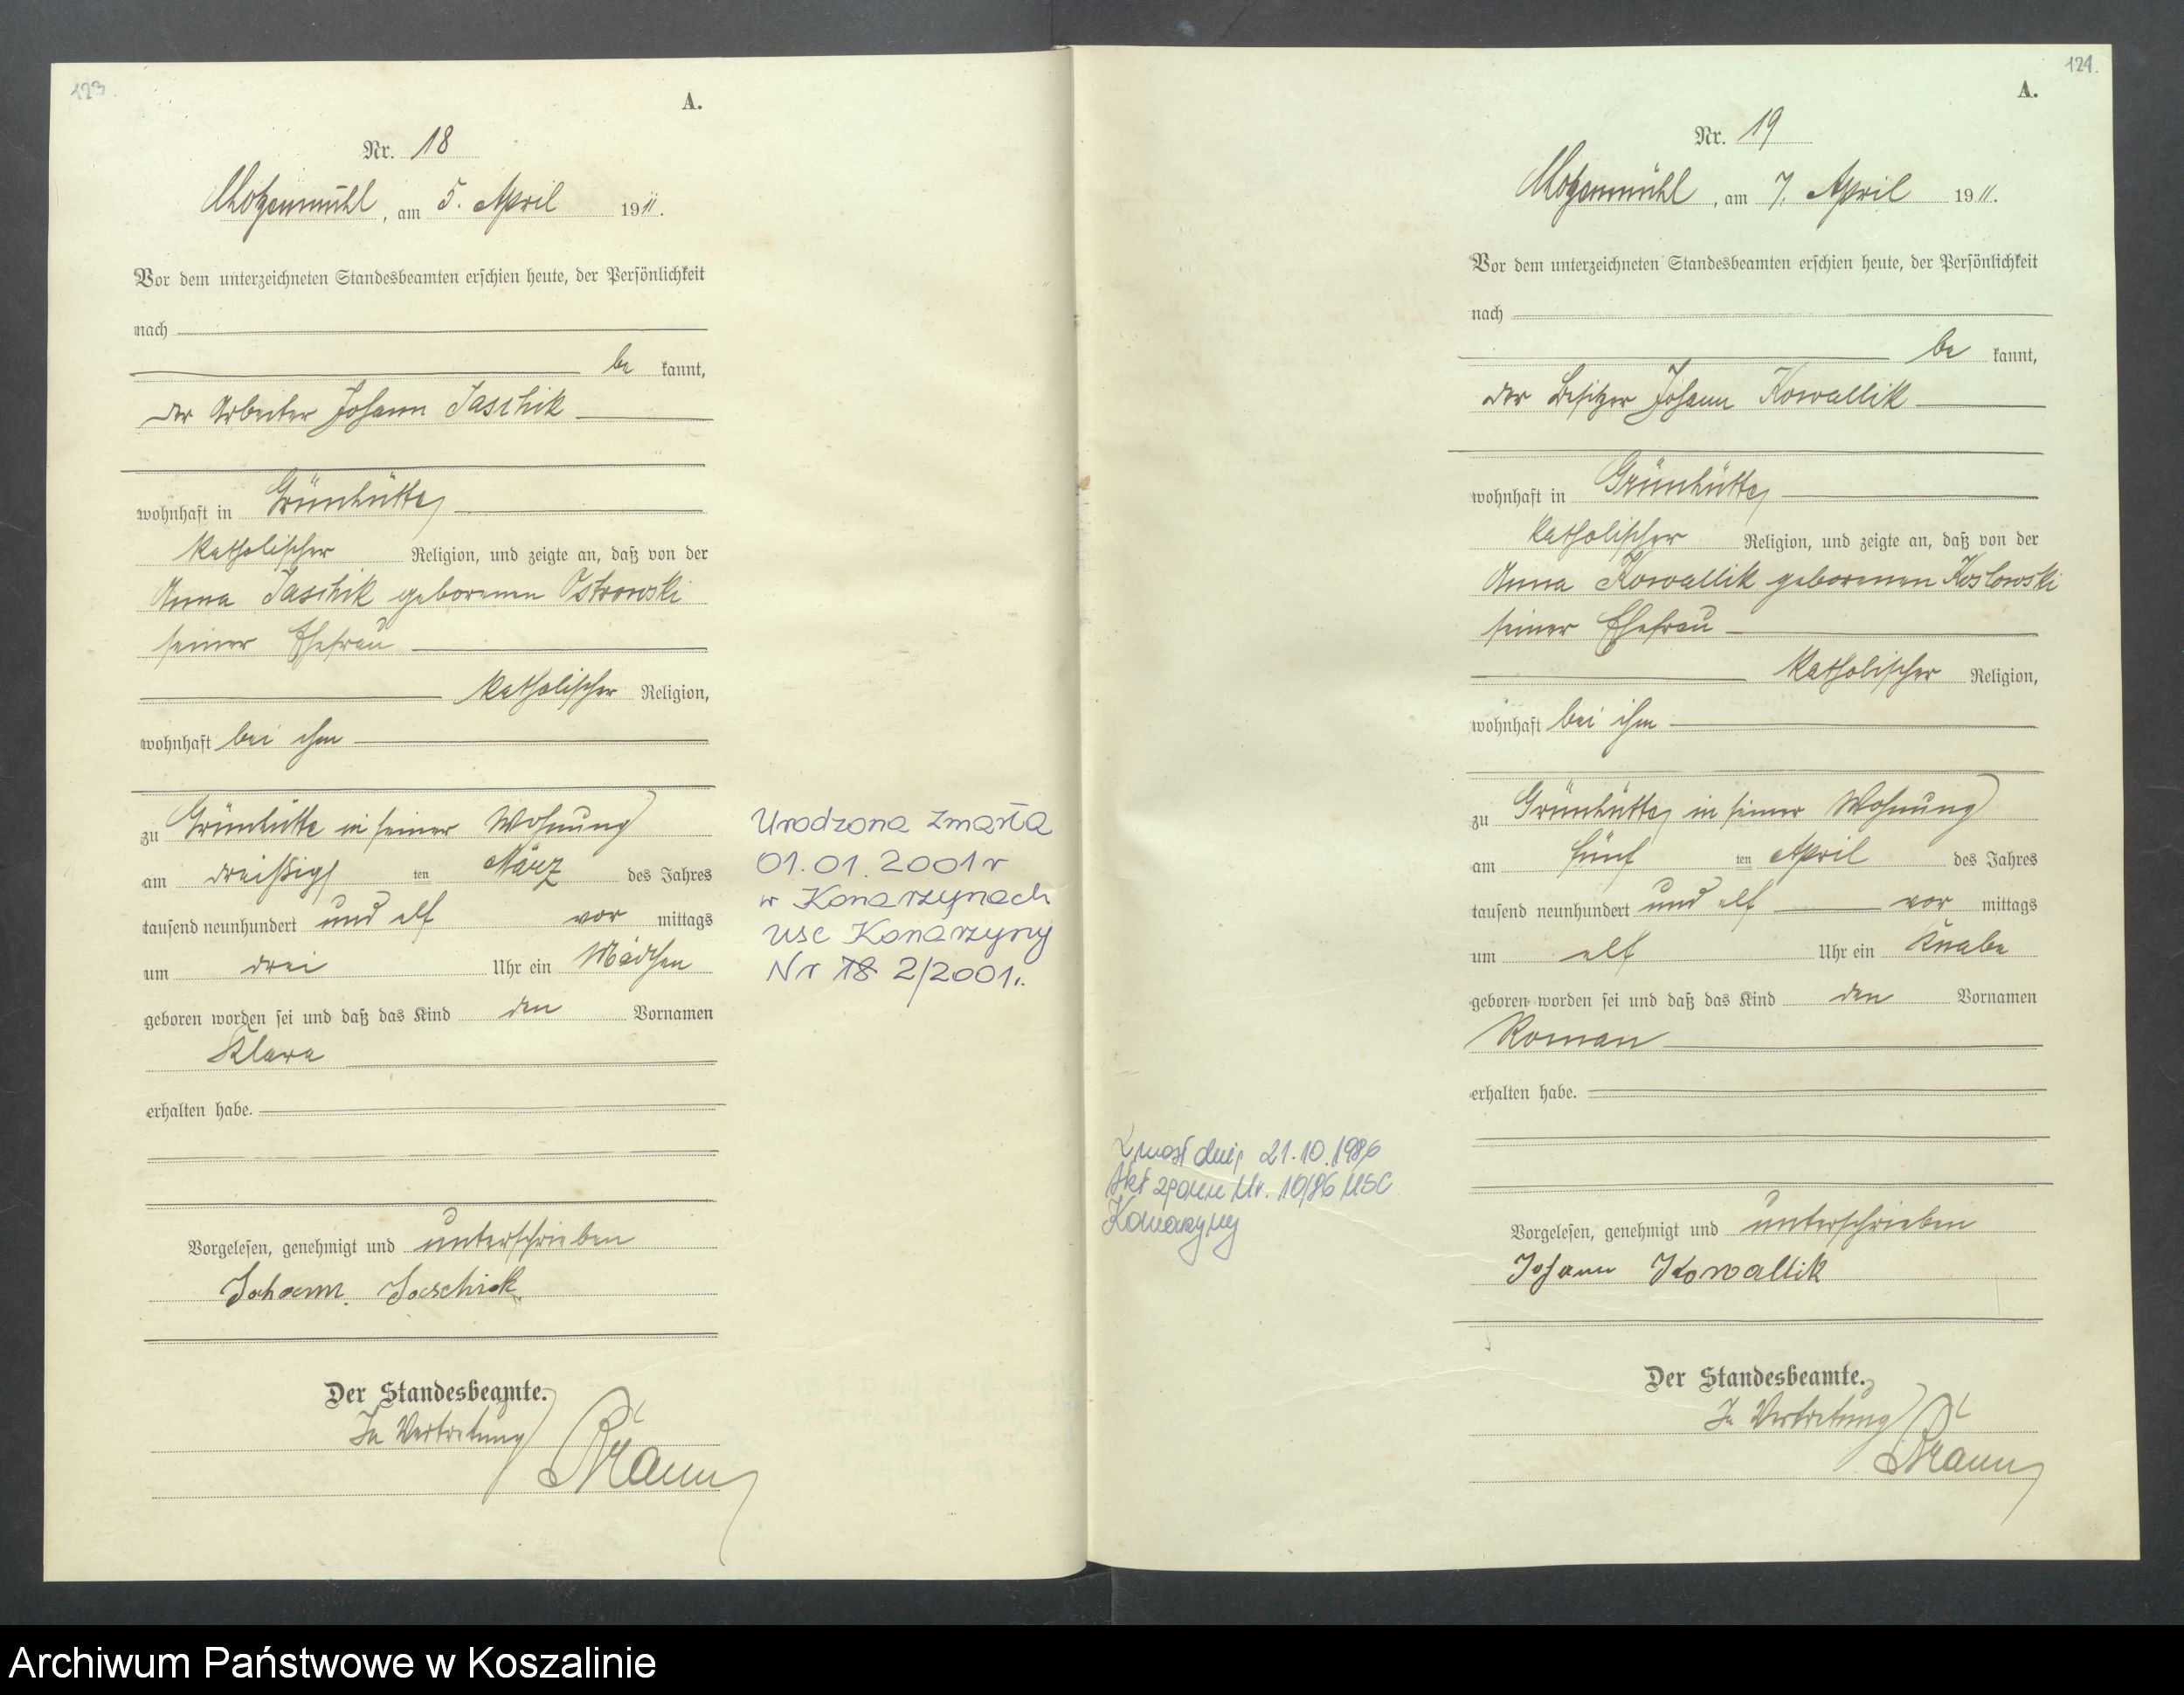 123.
A.
Nr. 18
Motzenmühl, am 5. April 1911.
Vor dem unterzeichneten Standesbeamten erschien heute, der Persönlichkeit
nach
be kannt,
der Arbeiter Johann Jaschik
wohnhaft in Grünhütte
katholischer Religion, und zeigte an, daß von der
Anna Jaschik geborenen Ostrowski
seiner Ehefrau
katholischer Religion,
wohnhaft bei ihm
zu Grünhütte in seiner Wohnung
am dreißigs ten März des Jahres
tausend neunhundert und elf vor mittags
um drei Uhr ein Mädchen
geboren worden sei und daß das Kind den Vornamen
Klara
erhalten habe.
Vorgelesen, genehmigt und unterschrieben
Johann Jaschick
Der Standesbeamte.
In Vertretung
Urodzona zmarła
01.01.2001 r
w Konarzynach
USC Konarzyny
Nr 18 2/2001.
124.
A.
Nr. 19
Motzenmühl, am 7. April 1911.
Vor dem unterzeichneten Standesbeamten erschien heute, der Persönlichkeit
nach
be kannt,
der Besitzer Johann Kowallik
wohnhaft in Grünhütte
katholischer Religion, und zeigte an, daß von der
Anna Kowallik geborenen Koslowski
seiner Ehefrau
katholischer Religion,
wohnhaft bei ihm
zu Grünhütte in seiner Wohnung
am fünf ten April des Jahres
tausend neunhundert und elf vor mittags
um elf Uhr ein Knabe
geboren worden sei und daß das Kind den Vornamen
Roman
erhalten habe.
Zmarł dnia 21.10.1986
Akt zgonu Nr. 10/86 USC
Konarzyny
Vorgelesen, genehmigt und unterschrieben
Johann Kowallik
Der Standesbeamte.
In Vertretung
Archiwum Państwowe w Koszalinie